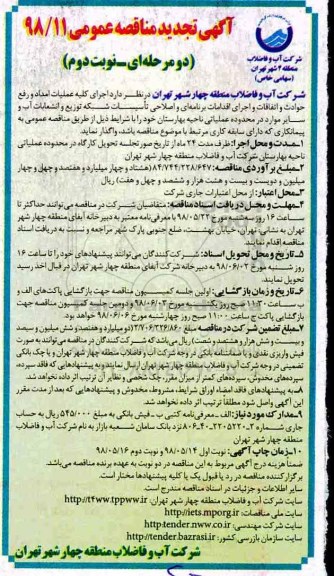 آگهی تجدید مناقصه عمومی ۹۸/۱۱
(دو مرحله‌ای ـ نوبت دوم)
شرکت آب و فاضلاب
منطقه ۴ شهر تهران
(سهامی خاص)
شرکت آب و فاضلاب منطقه چهار شهر تهران در نظر دارد اجرای کلیه عملیات امداد و رفع
حوادث و اتفاقات و اجرای اقدامات برنامه‌ای و اصلاحی تأسیسات شبکه توزیع و انشعابات آب و
سایر موارد در محدوده عملیاتی ناحیه بهارستان خود را با شرایط ذیل از طریق مناقصه عمومی به
پیمانکاری که دارای سابقه کاری مرتبط با موضوع مناقصه باشد، واگذار نماید.
۱ـ مدت و محل اجرا: ظرف مدت ۲۴ ماه از تاریخ صورتجلسه تحویل کارگاه در محدوده عملیاتی
ناحیه بهارستان شرکت آب و فاضلاب منطقه چهار شهر تهران
۲ـ مبلغ برآوردی مناقصه: ۸۴/۷۴۴/۲۲۸/۶۴۷ (هشتاد و چهار میلیارد و هفتصد و چهل و چهار
میلیون و دویست و بیست و هشت هزار و ششصد و چهل و هفت) ریال
۳ـ محل اعتبار: از محل اعتبارات جاری شرکت
۴ـ مهلت و محل دریافت اسناد مناقصه: متقاضیان شرکت در مناقصه می‌توانند حداکثر تا
ساعت ۱۶ روز سه‌شنبه مورخ ۹۸/۰۵/۲۲ با معرفی‌نامه معتبر به دبیرخانه آبفای منطقه چهار شهر
تهران به نشانی: تهران، خیابان بهشت، ضلع جنوبی پارک شهر مراجعه و نسبت به دریافت اسناد
مناقصه اقدام نمایند.
۵ـ تاریخ و محل تحویل اسناد: شرکت‌کنندگان می‌توانند پیشنهادهای خود را تا ساعت ۱۶
روز شنبه مورخ ۹۸/۰۶/۰۲ به دبیرخانه شرکت آبفای منطقه چهار شهر تهران در قبال اخذ رسید
تحویل نمایند.
۶ـ تاریخ و زمان بازگشایی: اولین جلسه کمیسیون مناقصه جهت بازگشایی پاکت‌های الف و
ب ساعت ۱۱:۳۰ صبح روز یکشنبه مورخ ۹۸/۰۶/۰۳ و دومین جلسه کمیسیون مناقصه جهت
بازگشایی پاکت ج ساعت ۱۱:۰۰ صبح روز چهارشنبه مورخ ۹۸/۰۶/۰۶ خواهد بود.
۷ـ مبلغ تضمین شرکت در مناقصه: مبلغ ۲/۷۰۶/۳۲۶/۸۶۰ (دو میلیارد و هفتصد و شش میلیون و سیصد
و بیست و شش هزار و هشتصد و شصت) ریال می‌باشد که شرکت‌کنندگان در مناقصه می‌توانند به صورت
فیش واریزی نقدی و یا ضمانتنامه بانکی در وجه شرکت آب و فاضلاب منطقه چهار شهر تهران و یا چک بانکی
تضمینی در وجه شرکت آب و فاضلاب منطقه چهار شهر تهران ارسال نمایند و به پیشنهادهایی که فاقد سپرده،
سپرده‌های مخدوش، سپرده‌های کمتر از میزان مقرر، چک شخصی و نظایر آن ترتیب اثر داده نخواهد شد.
۸ـ به پیشنهادهای فاقد امضاء اوراق شرایط، مشروط، مخدوش و پیشنهادهایی که بعد از مدت مقرر
این آگهی واصل شود مطلقاً ترتیب اثر داده نخواهد شد.
۹ـ مدارک مورد نیاز: الف ـ معرفی‌نامه کتبی ب ـ فیش بانکی به مبلغ ۵۴۵/۰۰۰ ریال به حساب
جاری شماره نزد بانک سامان شعبه بازار به نام شرکت آب و فاضلاب
منطقه چهار شهر تهران
۱۰ـ زمان چاپ آگهی: نوبت اول ۹۸/۰۵/۱۴ و نوبت دوم ۹۸/۰۵/۱۶
ضمناً هزینه درج آگهی مربوط به این مناقصه در دو نوبت به عهده برنده مناقصه می‌باشد.
برگزارکننده مناقصه در رد یا قبول یک یا کلیه پیشنهادها مختار است.
سایر اطلاعات و جزئیات در اسناد مناقصه مندرج است.
سایت شرکت آب و فاضلاب منطقه چهار شهر تهران: http://t4ww.tpww.ir
سایت ملی مناقصات: http://iets.mporg.ir
سایت شرکت مهندسی: http:tender.nww.co.ir
سایت سازمان بازرسی کشور: http://tender.bazrasi.ir
شرکت آب و فاضلاب منطقه چهار شهر تهران